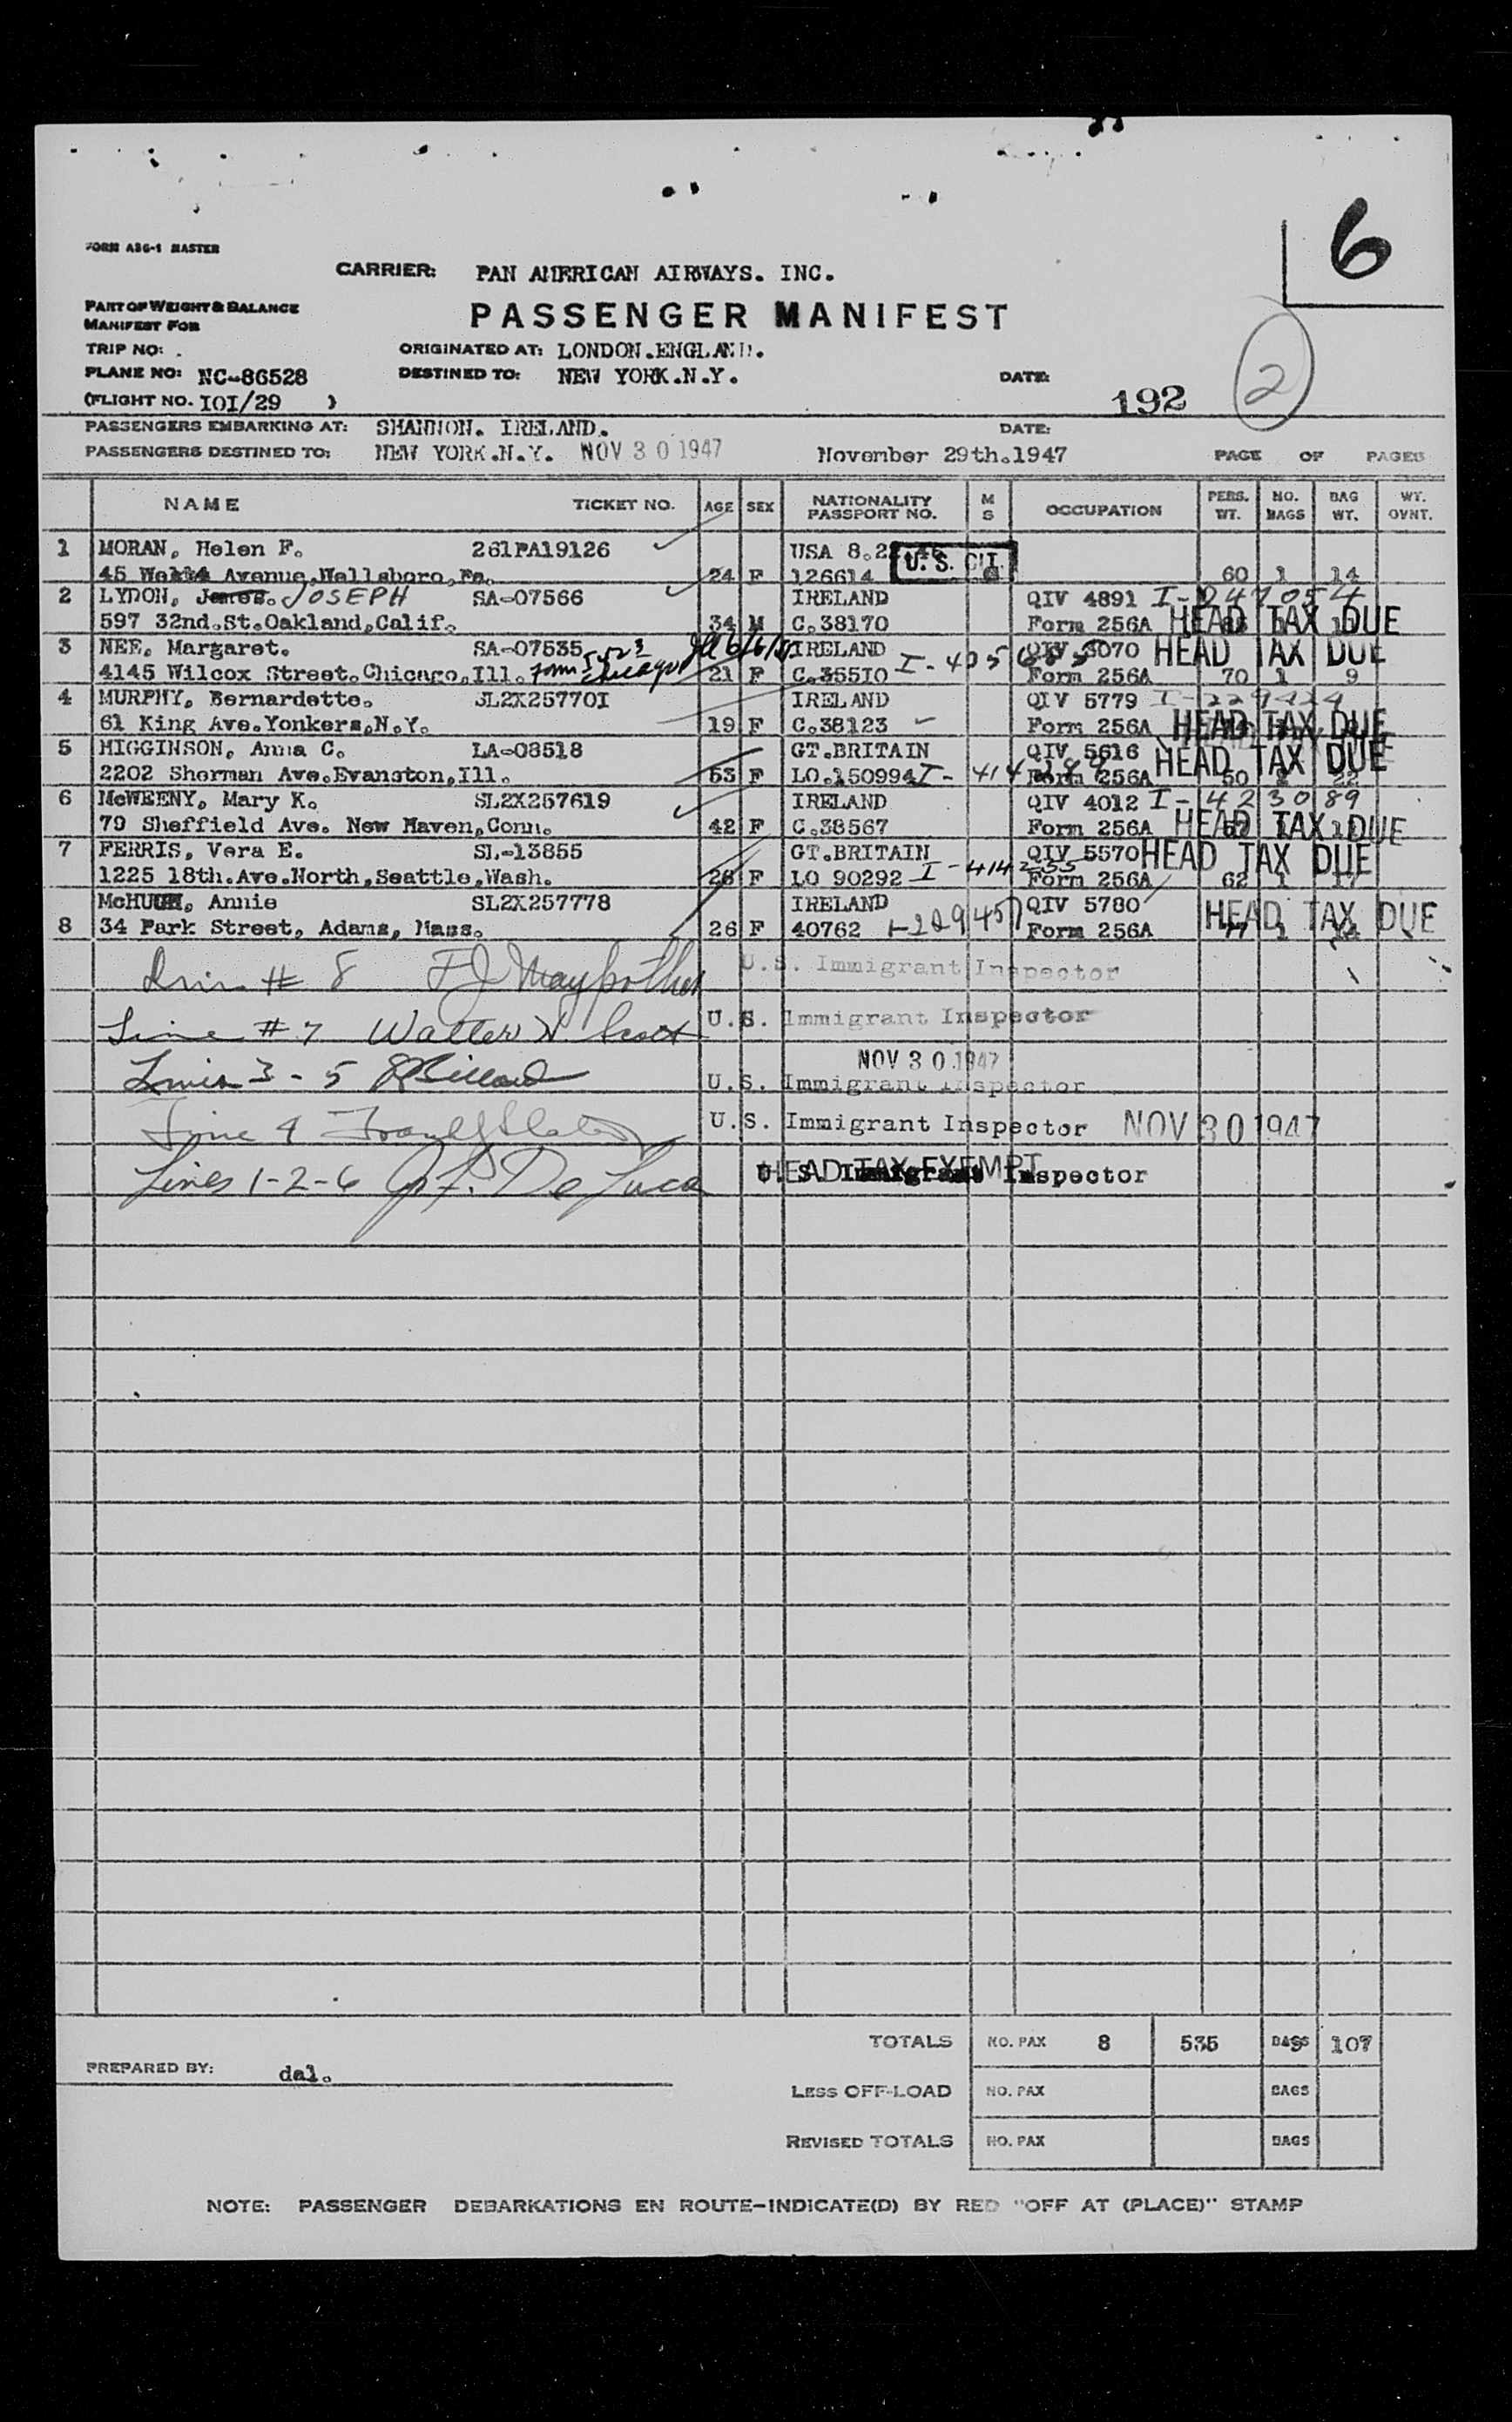 6
FORM A86-1 MASTER
CARRIER: PAN AMERICAN AIRWAYS. INC.
PART OF WEIGHT & BALANCE
MANIFEST FOR
PASSENGER MANIFEST
TRIP NO: .
ORIGINATED AT: LONDON.ENGLAND.
PLANE NO: NC-86528
DESTINED TO: NEW YORK.N.Y.
DATE:
192
2
(FLIGHT NO. IOI/29 )
PASSENGERS EMBARKING AT: SHANNON. IRELAND.
DATE:
PASSENGERS DESTINED TO: NEW YORK.N.Y. NOV 30 1947 November 29th.1947 PAGE OF PAGES
NAME TICKET NO. AGE SEX NATIONALITY PASSPORT NO. M S OCCUPATION PERS. WT. NO. BAGS BAG WT. WT. OVNT.
1 MORAN, Helen F. 261PA19126 USA U.S. CIT.
45 Avenue,Wellsboro,Pa. 24 F 126614 60 1 14
2 LYDON, James. JOSEPH SA-07566 IRELAND QIV 4891 I-
597 32nd.St.Oakland,Calif. 34 M C.38170 Form 256A HEAD TAX DUE
3 NEE, Margaret. SA-07535 IRELAND QIV 3070 HEAD TAX DUE
4145 Wilcox Street.Chicago,Ill. Chicago 21 F C.35510 I-405 Form 256A 70 1 9
4 MURPHY, Bernardette. JL2X25770I IRELAND QIV 5779 I-229424
61 King Ave.Yonkers,N.Y. 19 F C.38123 Form 256A HEAD TAX DUE
5 HIGGINSON, Anna C. LA-08518 GT.BRITAIN QIV 5616 HEAD TAX DUE
2202 Sherman Ave.Evanston,Ill. 53 F LO.150994 I-414 Form 256A 50 2 22
6 McWEENY, Mary K. SL2X257619 IRELAND QIV 4012 I-423089
79 Sheffield Ave. New Haven,Conn. 42 F C.38567 Form 256A HEAD TAX DUE
7 FERRIS, Vera E. SL-13855 GT.BRITAIN QIV 5570 HEAD TAX DUE
1225 18th.Ave.North,Seattle,Wash. 26 F LO 90292 I-414255 Form 256A 62 1 17
McHUGH, Annie SL2X257778 IRELAND QIV 5780 HEAD TAX DUE
8 34 Park Street, Adams, Mass. 26 F 40762 I-229457 Form 256A 77 1
# 8 U.S. Immigrant Inspector
Line # 7 Walter N. Scott U.S. Immigrant Inspector
NOV 30 1947
Lines 3 - 5 U.S. Immigrant Inspector
Line 4 U.S. Immigrant Inspector NOV 30 1947
Lines 1-2-6 De Luca U.S. Immigrant Inspector HEAD TAX EXEMPT
TOTALS NO. PAX 8 535 BAGS 9 107
PREPARED BY: dal.
LESS OFF-LOAD NO. PAX BAGS
REVISED TOTALS NO. PAX BAGS
NOTE: PASSENGER DEBARKATIONS EN ROUTE-INDICATE(D) BY RED "OFF AT (PLACE)" STAMP